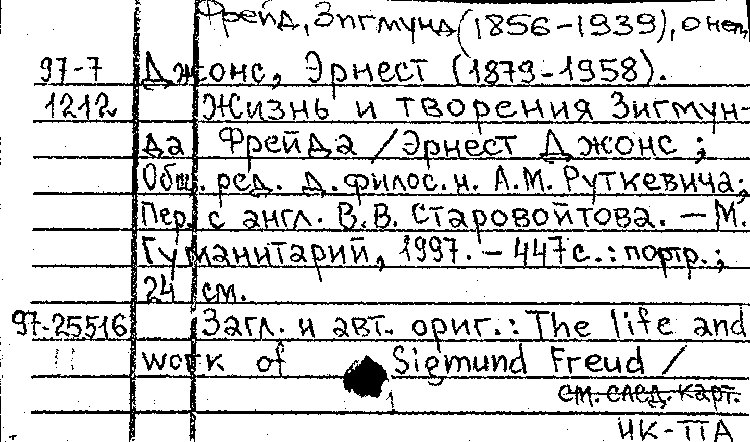 Фрейд, Зигмунд (1856-1939), о нем
97-7 Джонс, Эрнест (1879-1958).
1212 Жизнь и творения Зигмун-
да Фрейда / Эрнест Джонс ;
Общ. ред. д. филос. н. А.М. Руткевича;
Пер. с англ. В.В. Старовойтова. – М.
Гуманитарий, 1997. – 447 с. : портр. ;
24 см.
97-25516 Загл. и авт. ориг. : The life and
work of Sigmund Freud /
см. след. карт.
ИК-ПА